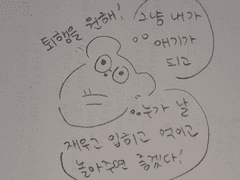 퇴행을 원해!
그냥 내가
애기가
되고
누가 날
재우고 입히고 먹이고
놀아주면 좋겠다!